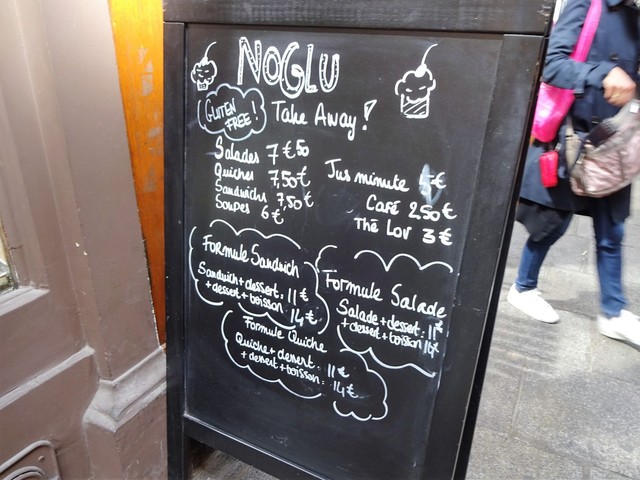 NOGLU
GLUTEN FREE!
Take Away!
Salades 7€50
Quiches 7,50€
Sandwichs 7,50€
Soupes 6€
Jus minute €
Café 2.50€
Thé Lov 3€
Formule Sandwich
Sandwich + dessert : 11€
+ dessert + boisson : 14€
Formule Salade
Salade + dessert : 11€
+ dessert + boisson
Formule Quiche
Quiche + dessert : 11€
+ dessert + boisson : 14€